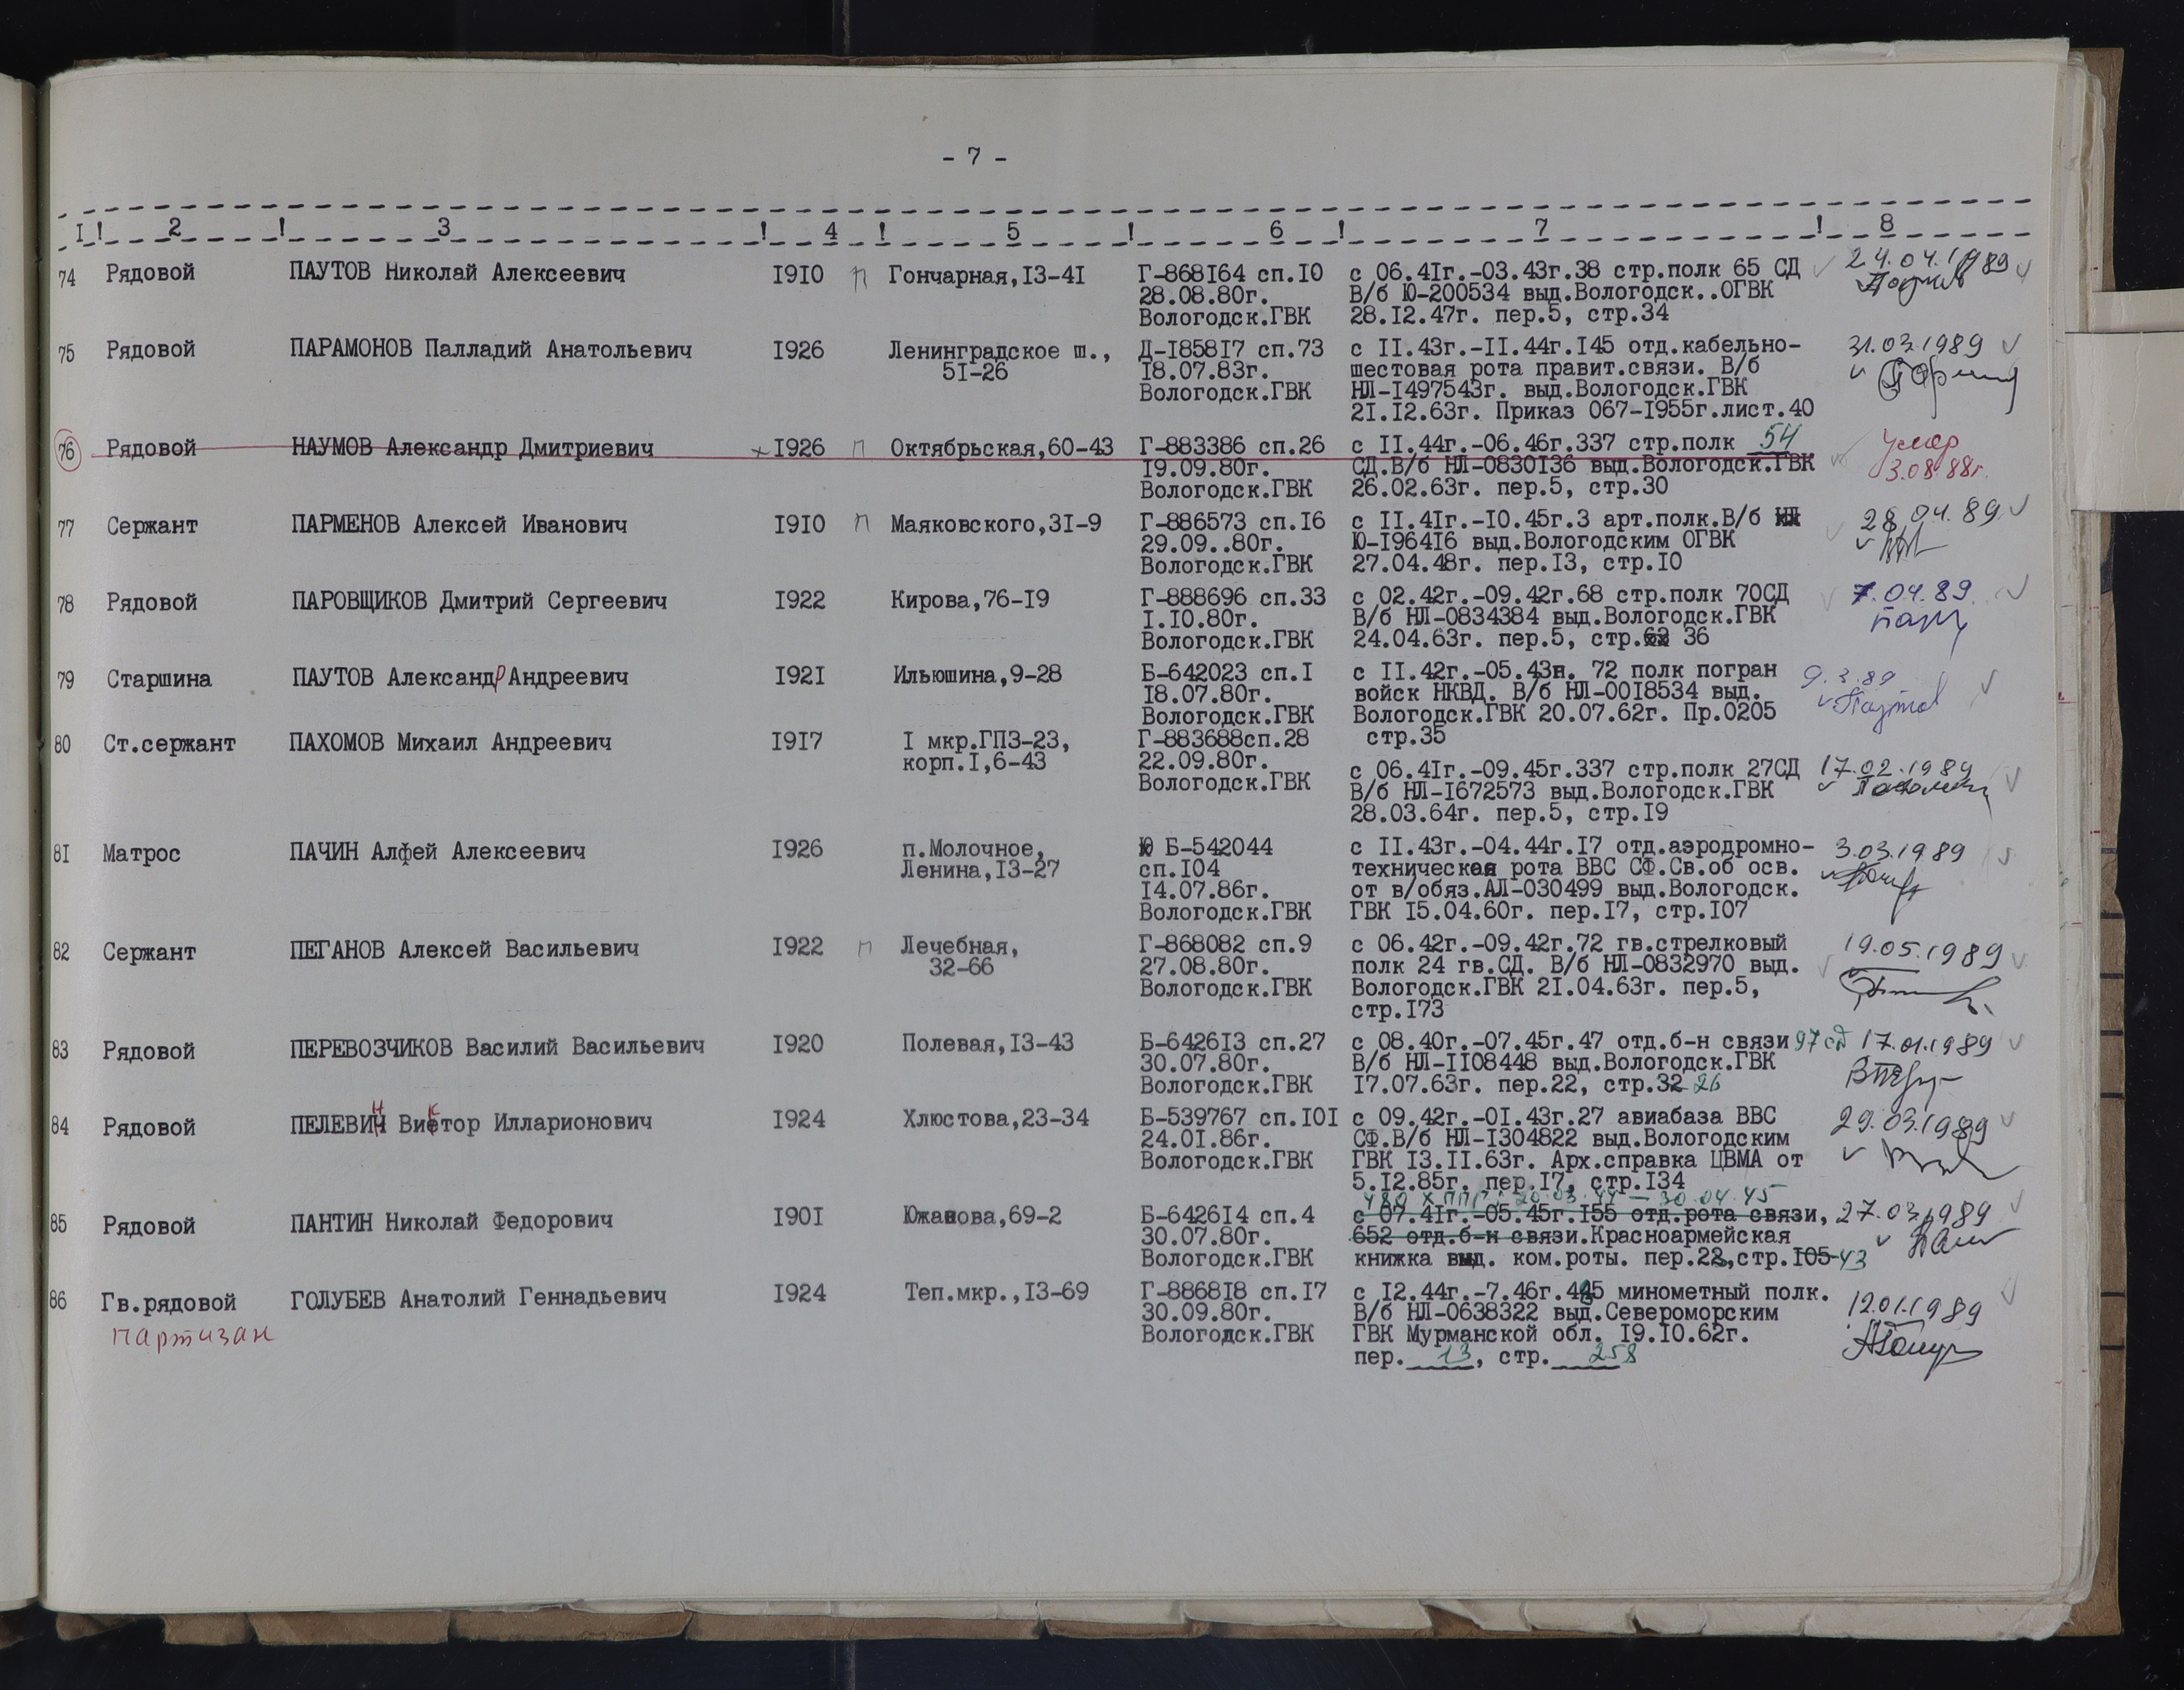 - 7 -
I! 2 ! 3 ! 4 ! 5 ! 6 ! 7 ! 8
74 Рядовой ПАУТОВ Николай Алексеевич I9I0 п Гончарная,I3-4I Г-868I64 сп.I0 с 06.4Iг.-03.43г.38 стр.полк 65 СД 24.04.1989
28.08.80г. В/б Ю-200534 выд.Вологодск..ОГВК
Вологодск.ГВК 28.I2.47г. пер.5, стр.34
75 Рядовой ПАРАМОНОВ Палладий Анатольевич I926 Ленинградское ш., Д-I858I7 сп.73 с II.43г.-II.44г.I45 отд.кабельно- 31.03.1989
5I-26 I8.07.83г. шестовая рота правит.связи. В/б
Вологодск.ГВК НЛ-I497543г. выд.Вологодск.ГВК
2I.I2.63г. Приказ 067-I955г.лист.40
76 Рядовой НАУМОВ Александр Дмитриевич I926 п Октябрьская,60-43 Г-883386 сп.26 с II.44г.-06.46г.337 стр.полк 54 Умер
I9.09.80г. СД.В/б НЛ-0830I36 выд.Вологодск.ГВК 3.08.88г.
Вологодск.ГВК 26.02.63г. пер.5, стр.30
77 Сержант ПАРМЕНОВ Алексей Иванович I9I0 п Маяковского,3I-9 Г-886573 сп.I6 с II.4Iг.-I0.45г.3 арт.полк.В/б НЛ 28.04.89
29.09..80г. Ю-I964I6 выд.Вологодским ОГВК
Вологодск.ГВК 27.04.48г. пер.I3, стр.I0
78 Рядовой ПАРОВЩИКОВ Дмитрий Сергеевич I922 Кирова,76-I9 Г-888696 сп.33 с 02.42г.-09.42г.68 стр.полк 70СД 7.04.89
I.I0.80г. В/б НЛ-0834384 выд.Вологодск.ГВК
Вологодск.ГВК 24.04.63г. пер.5, стр. 36
79 Старшина ПАУТОВ Александр Андреевич I92I Ильюшина,9-28 Б-642023 сп.I с II.42г.-05.43н. 72 полк погран 9.3.89
I8.07.80г. войск НКВД. В/б НЛ-00I8534 выд. Паутов
Вологодск.ГВК Вологодск.ГВК 20.07.62г. Пр.0205
80 Ст.сержант ПАХОМОВ Михаил Андреевич I9I7 I мкр.ГПЗ-23, Г-883688сп.28 стр.35
корп.I,6-43 22.09.80г. с 06.4Iг.-09.45г.337 стр.полк 27СД 17.02.1989
Вологодск.ГВК В/б НЛ-I672573 выд.Вологодск.ГВК
28.03.64г. пер.5, стр.I9
8I Матрос ПАЧИН Алфей Алексеевич I926 п.Молочное, Ю Б-542044 с II.43г.-04.44г.I7 отд.аэродромно- 3.03.1989
Ленина,I3-27 сп.I04 техническая рота ВВС СФ.Св.об осв.
I4.07.86г. от в/обяз.АЛ-030499 выд.Вологодск.
Вологодск.ГВК ГВК I5.04.60г. пер.I7, стр.I07
82 Сержант ПЕГАНОВ Алексей Васильевич I922 п Лечебная, Г-868082 сп.9 с 06.42г.-09.42г.72 гв.стрелковый 19.05.1989
32-66 27.08.80г. полк 24 гв.СД. В/б НЛ-0832970 выд.
Вологодск.ГВК Вологодск.ГВК 2I.04.63г. пер.5,
стр.I73
83 Рядовой ПЕРЕВОЗЧИКОВ Василий Васильевич I920 Полевая,I3-43 Б-6426I3 сп.27 с 08.40г.-07.45г.47 отд.б-н связи 97 сд 17.01.1989
30.07.80г. В/б НЛ-II08448 выд.Вологодск.ГВК
Вологодск.ГВК I7.07.63г. пер.22, стр.32 26
84 Рядовой ПЕЛЕВИН Виктор Илларионович I924 Хлюстова,23-34 Б-539767 сп.I0I с 09.42г.-0I.43г.27 авиабаза ВВС 29.03.1989
24.0I.86г. СФ.В/б НЛ-I304822 выд.Вологодским
Вологодск.ГВК ГВК I3.II.63г. Арх.справка ЦВМА от
5.I2.85г. пер.I7, стр.I34
480 ХППГ: 20.03.44 - 30.04.45
85 Рядовой ПАНТИН Николай Федорович I90I Южакова,69-2 Б-6426I4 сп.4 с 07.4Iг.-05.45г.I55 отд.рота связи, 27.03.1989
30.07.80г. 652 отд.б-н связи.Красноармейская
Вологодск.ГВК книжка выд. ком.роты. пер.23,стр.I05 43
86 Гв.рядовой ГОЛУБЕВ Анатолий Геннадьевич I924 Теп.мкр.,I3-69 Г-8868I8 сп.I7 с I2.44г.-7.46г. минометный полк. 12.01.1989
партизан 30.09.80г. В/б НЛ-0638322 выд.Североморским
Вологодск.ГВК ГВК Мурманской обл. I9.I0.62г.
пер. 13, стр. 258